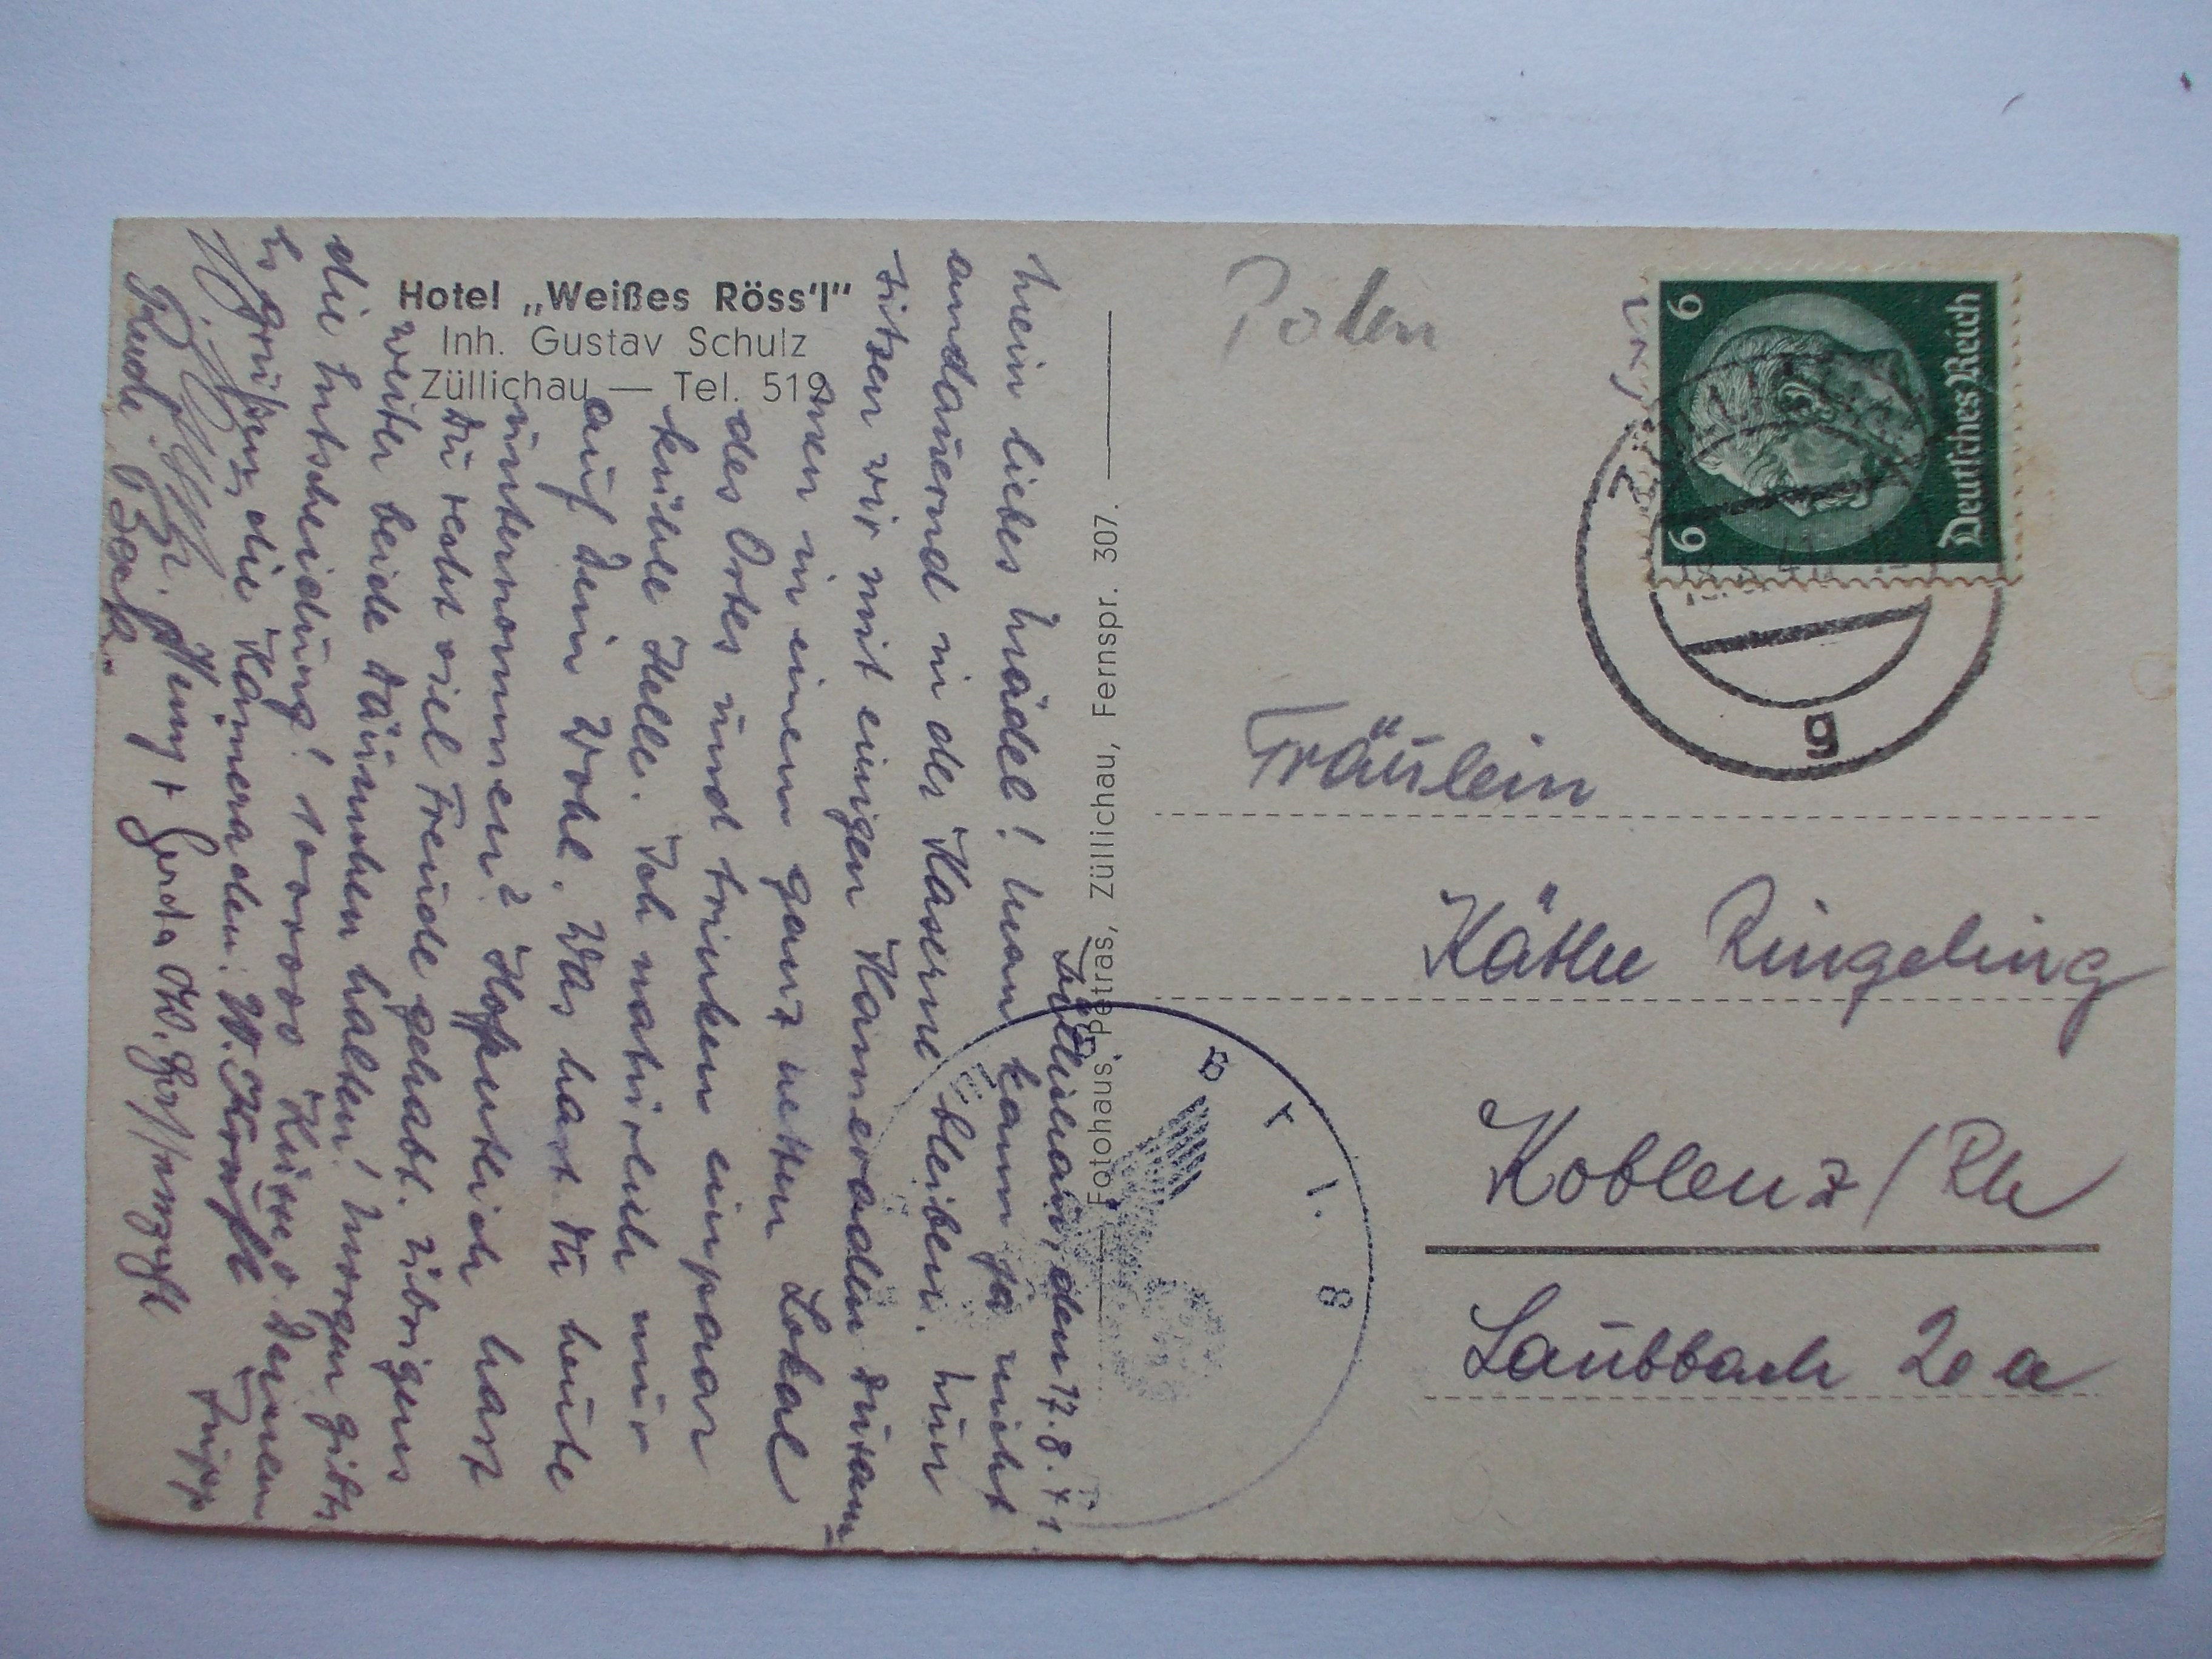 Hotel „Weißes Röss'l"
Inh. Gustav Schulz
Züllichau — Tel. 519
Züllichau, den 17.8.41
Mein liebes Mädel! Man kann ja nicht
andauernd in der Kaserne bleiben. Nun
sitzen wir mit einigen Kameraden zusam-
men in einem ganz netten Lokal
des Ortes und trinken ein paar
kühle Helle. Ich natürlich nur
auf Dein Wohl. Was hast Du heute
unternommen? Hoffentlich hast
Du recht viel Freude gehabt. Übrigens
weiter beide Däumchen halten! Morgen gibts
die Entscheidung! 100000 Küsse Deinem
Es grüßen die Kameraden: W.
Gerda
Fotohaus Petras, Züllichau, Fernspr. 307.
Polen
6 6
Deutsches Reich
g
8
Fräulein
Käthe Ringeling
Koblenz/Rh
Laubbach 20 a